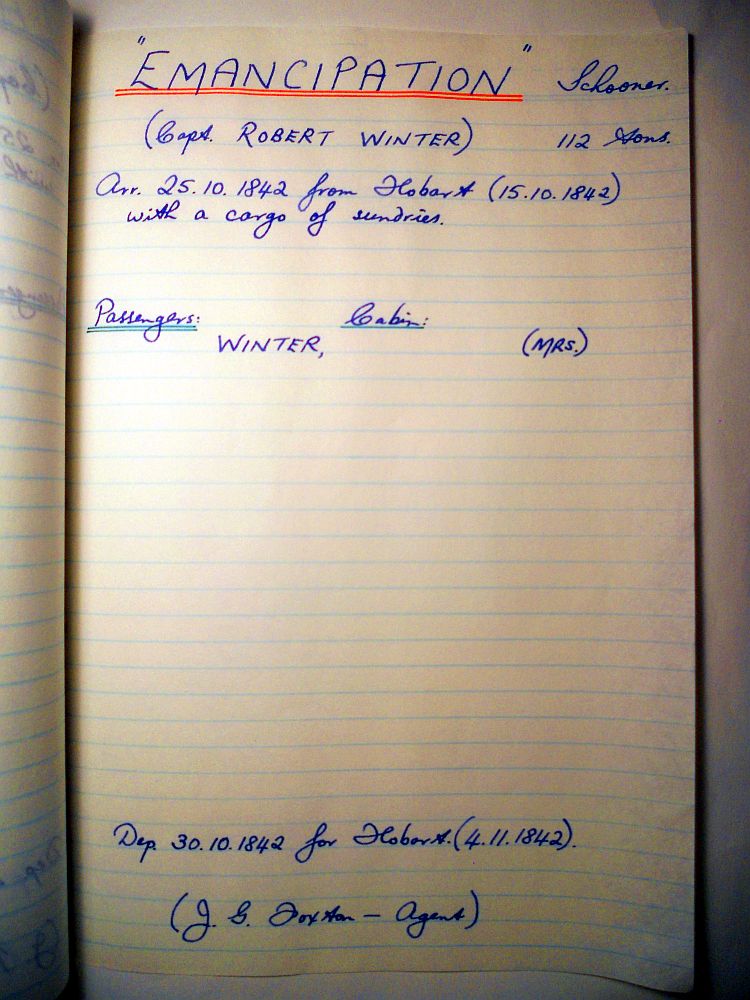 "EMANCIPATION" Schooner.
(Capt. ROBERT WINTER) 112 tons.
Arr. 25.10.1842 from Hobart (15.10.1842)
with a cargo of sundries.
Passengers: Cabin:
WINTER, (MRS.)
Dep. 30.10.1842 for Hobart. (4.11.1842).
(J. G. Foxton – Agent)